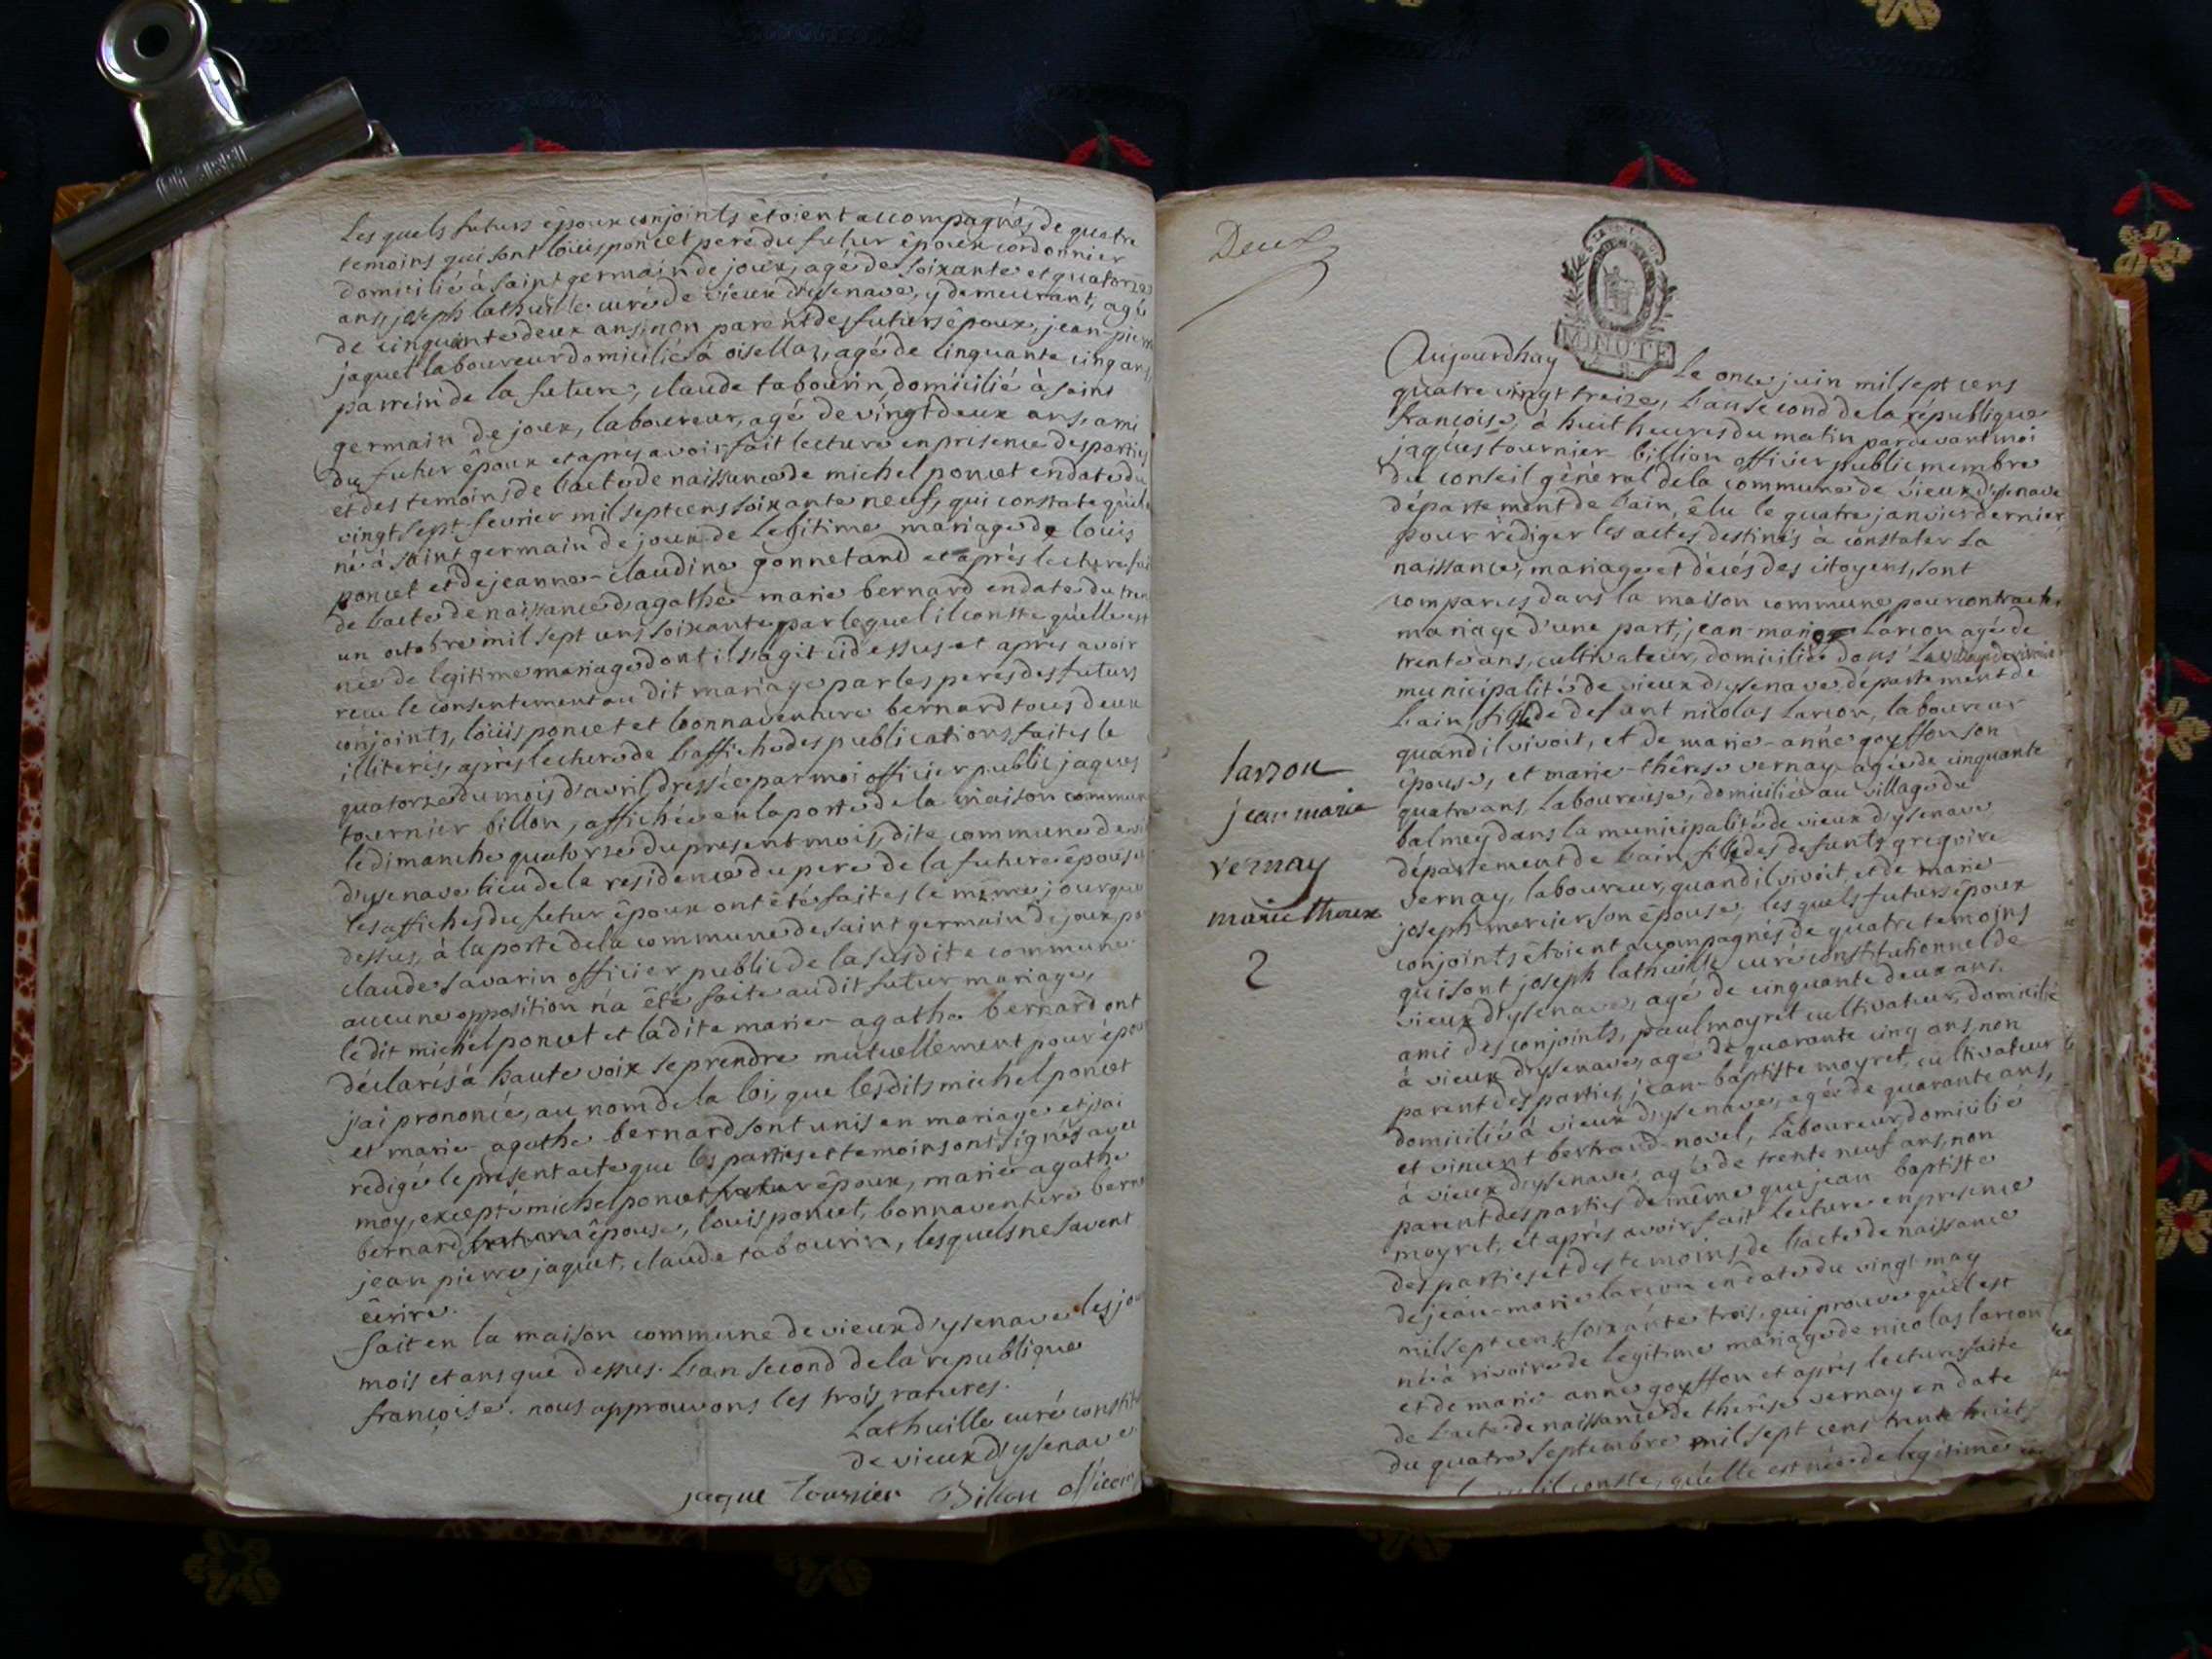 Les quels futurs époux conjoints étoient accompagnés de quatre
temoins qui sont loüis poncet pere du futur époux cordonnier
domicilié à saint germain de joux, agé de soixante et quatorze
ans, joseph lathuille curé de vieux d'ysenave, y demeurant, agé
de cinquante deux ans, non parent des futurs époux, jean-pierre
jaquet laboureur domicilié à oisellaz, agé de cinquante cinq ans,
parrein de la future, claude tabourin, domicilié à saint
germain de joux, laboureur, agé de vingt deux ans, ami
du futur époux et après avoir fait lecture en presence des parties
et des temoins de l'acte de naissance de michel poncet en date du
vingt sept fevrier mil sept cens soixante neuf, qui constate qu'il
né à saint germain de joux de legitime mariage de louis
poncet et de jeanne-claudine gonnetand et après lecture
de l'acte de naissance d'agathe marie bernard en date du
un octobre mil sept cens soixante par lequel il conste qu'elle est
née de legitime mariage dont il s'agit ci dessus et après avoir
recu le consentement au dit mariage par les peres des futurs
conjoints, loüis poncet et bonnaventure bernard tous deux
illiteris, après lecture de l'affiche des publications faites le
quatorze du mois d'avril, dressée par moi officier public jaques
tournier billon, affichée en la porte de la maison commune
le dimanche quatorze du present mois, dite commune de
d'ysenave lieu de la residence du pere de la future épouse
les affiches du futur époux ont été faites le même jour que
dessus, à la porte de la commune de saint germain de joux
claude savarin officier public de la susdite commune
aucune opposition n'a été faite audit futur mariage,
le dit michel poncet et ladite marie agathe bernard ont
déclarés à haute voix se prendre mutuellement pour
j'ai prononcé, au nom de la loi, que lesdits michel poncet
et marie agathe bernard sont unis en mariage et j'ai
redigé le present acte que les parties et temoins ont signés avec
moy, excepté michel poncet époux, marie agathe
bernard épouse, louis poncet, bonnaventure
jean pierre jaquet, claude tabourin, lesquels ne savent
écrire.
fait en la maison commune de vieux d'ysenave les
mois et ans que dessus. l'an second de la republique
françoise. nous approuvons les trois ratures.
Lathuille curé
de vieux d'ysenave
jaque tournier Billon officier
Deux
MINUTE
Aujourdhuy Le onze juin mil sept cens
quatre vingt treize, l'an second de la république
françoise, à huit heures du matin pardevant moi
jaques tournier-billion officier public membre
du conseil général de la commune de vieux d'ysenave
département de l'ain, élu le quatre janvier dernier
pour rédiger les actes destinés à constater la
naissance, mariage et décés des citoyens, sont
comparus dans la maison commune pour contracter
mariage d'une part, jean-marie larcon agé de
trente ans, cultivateur, domicilié dans le village de rivoire
municipalité de vieux d'ysenave, departement de
l'ain, fils de defunt nicolas larcon, laboureur
quand il vivoit, et de marie-anne goyffon son
épouse, et marie-thérese vernay agée de cinquante
quatre ans, laboureuse, domiciliée au village du
balmey dans la municipalité de vieux d'ysenave
département de l'ain, fille des defunts gregoire
vernay, laboureur, quand il vivoit, et de marie
joseph mercier son épouse, les quels futurs époux
conjoints étoient accompagnés de quatre temoins
qui sont joseph lathuille curé constitutionnel de
vieux d'ysenave, agé de cinquante deux ans.
ami des conjoints, paul moyret cultivateur, domicilié
à vieux d'ysenave, agé de quarante cinq ans, non
parent des parties, jean-baptiste moyret, cultivateur
domicilié à vieux d'ysenave, agé de quarante ans,
et vincent bertrand-novel, laboureur, domicilié
à vieux d'ysenave, agé de trente neuf ans, non
parent des parties de même que jean baptiste
moyret, et après avoir fait lecture en presence
des parties et des temoins de l'acte de naissance
de jean-marie larcon en date du vingt may
mil sept cens soixante trois, qui prouve qu'il est
né à rivoire de legitime mariage de nicolas larcon
et de marie anne goyffon et après lecture faite
de l'acte de naissance de thérèse vernay en date
du quatre septembre mil sept cens trente huit
il conste, qu'elle est née de legitime
larzon
jean marie
vernay
marie therese
2